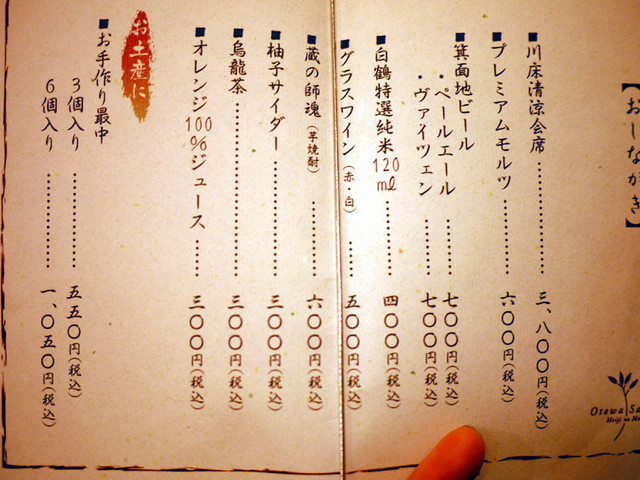 【おしながき】
■川床清涼会席………………三、八〇〇円(税込)
■プレミアムモルツ…………六〇〇円(税込)
■箕面地ビール
・ペールエール……………七〇〇円(税込)
・ヴァイツェン……………七〇〇円(税込)
■白鶴特選純米120ml……四〇〇円(税込)
■グラスワイン(赤・白)……五〇〇円(税込)
■蔵の師魂(芋焼酎)…………六〇〇円(税込)
■柚子サイダー………………三〇〇円(税込)
■烏龍茶………………………三〇〇円(税込)
■オレンジ100%ジュース……三〇〇円(税込)
お土産に
■お手作り最中
3個入り………………五五〇円(税込)
6個入り………………一、〇五〇円(税込)
Otowa